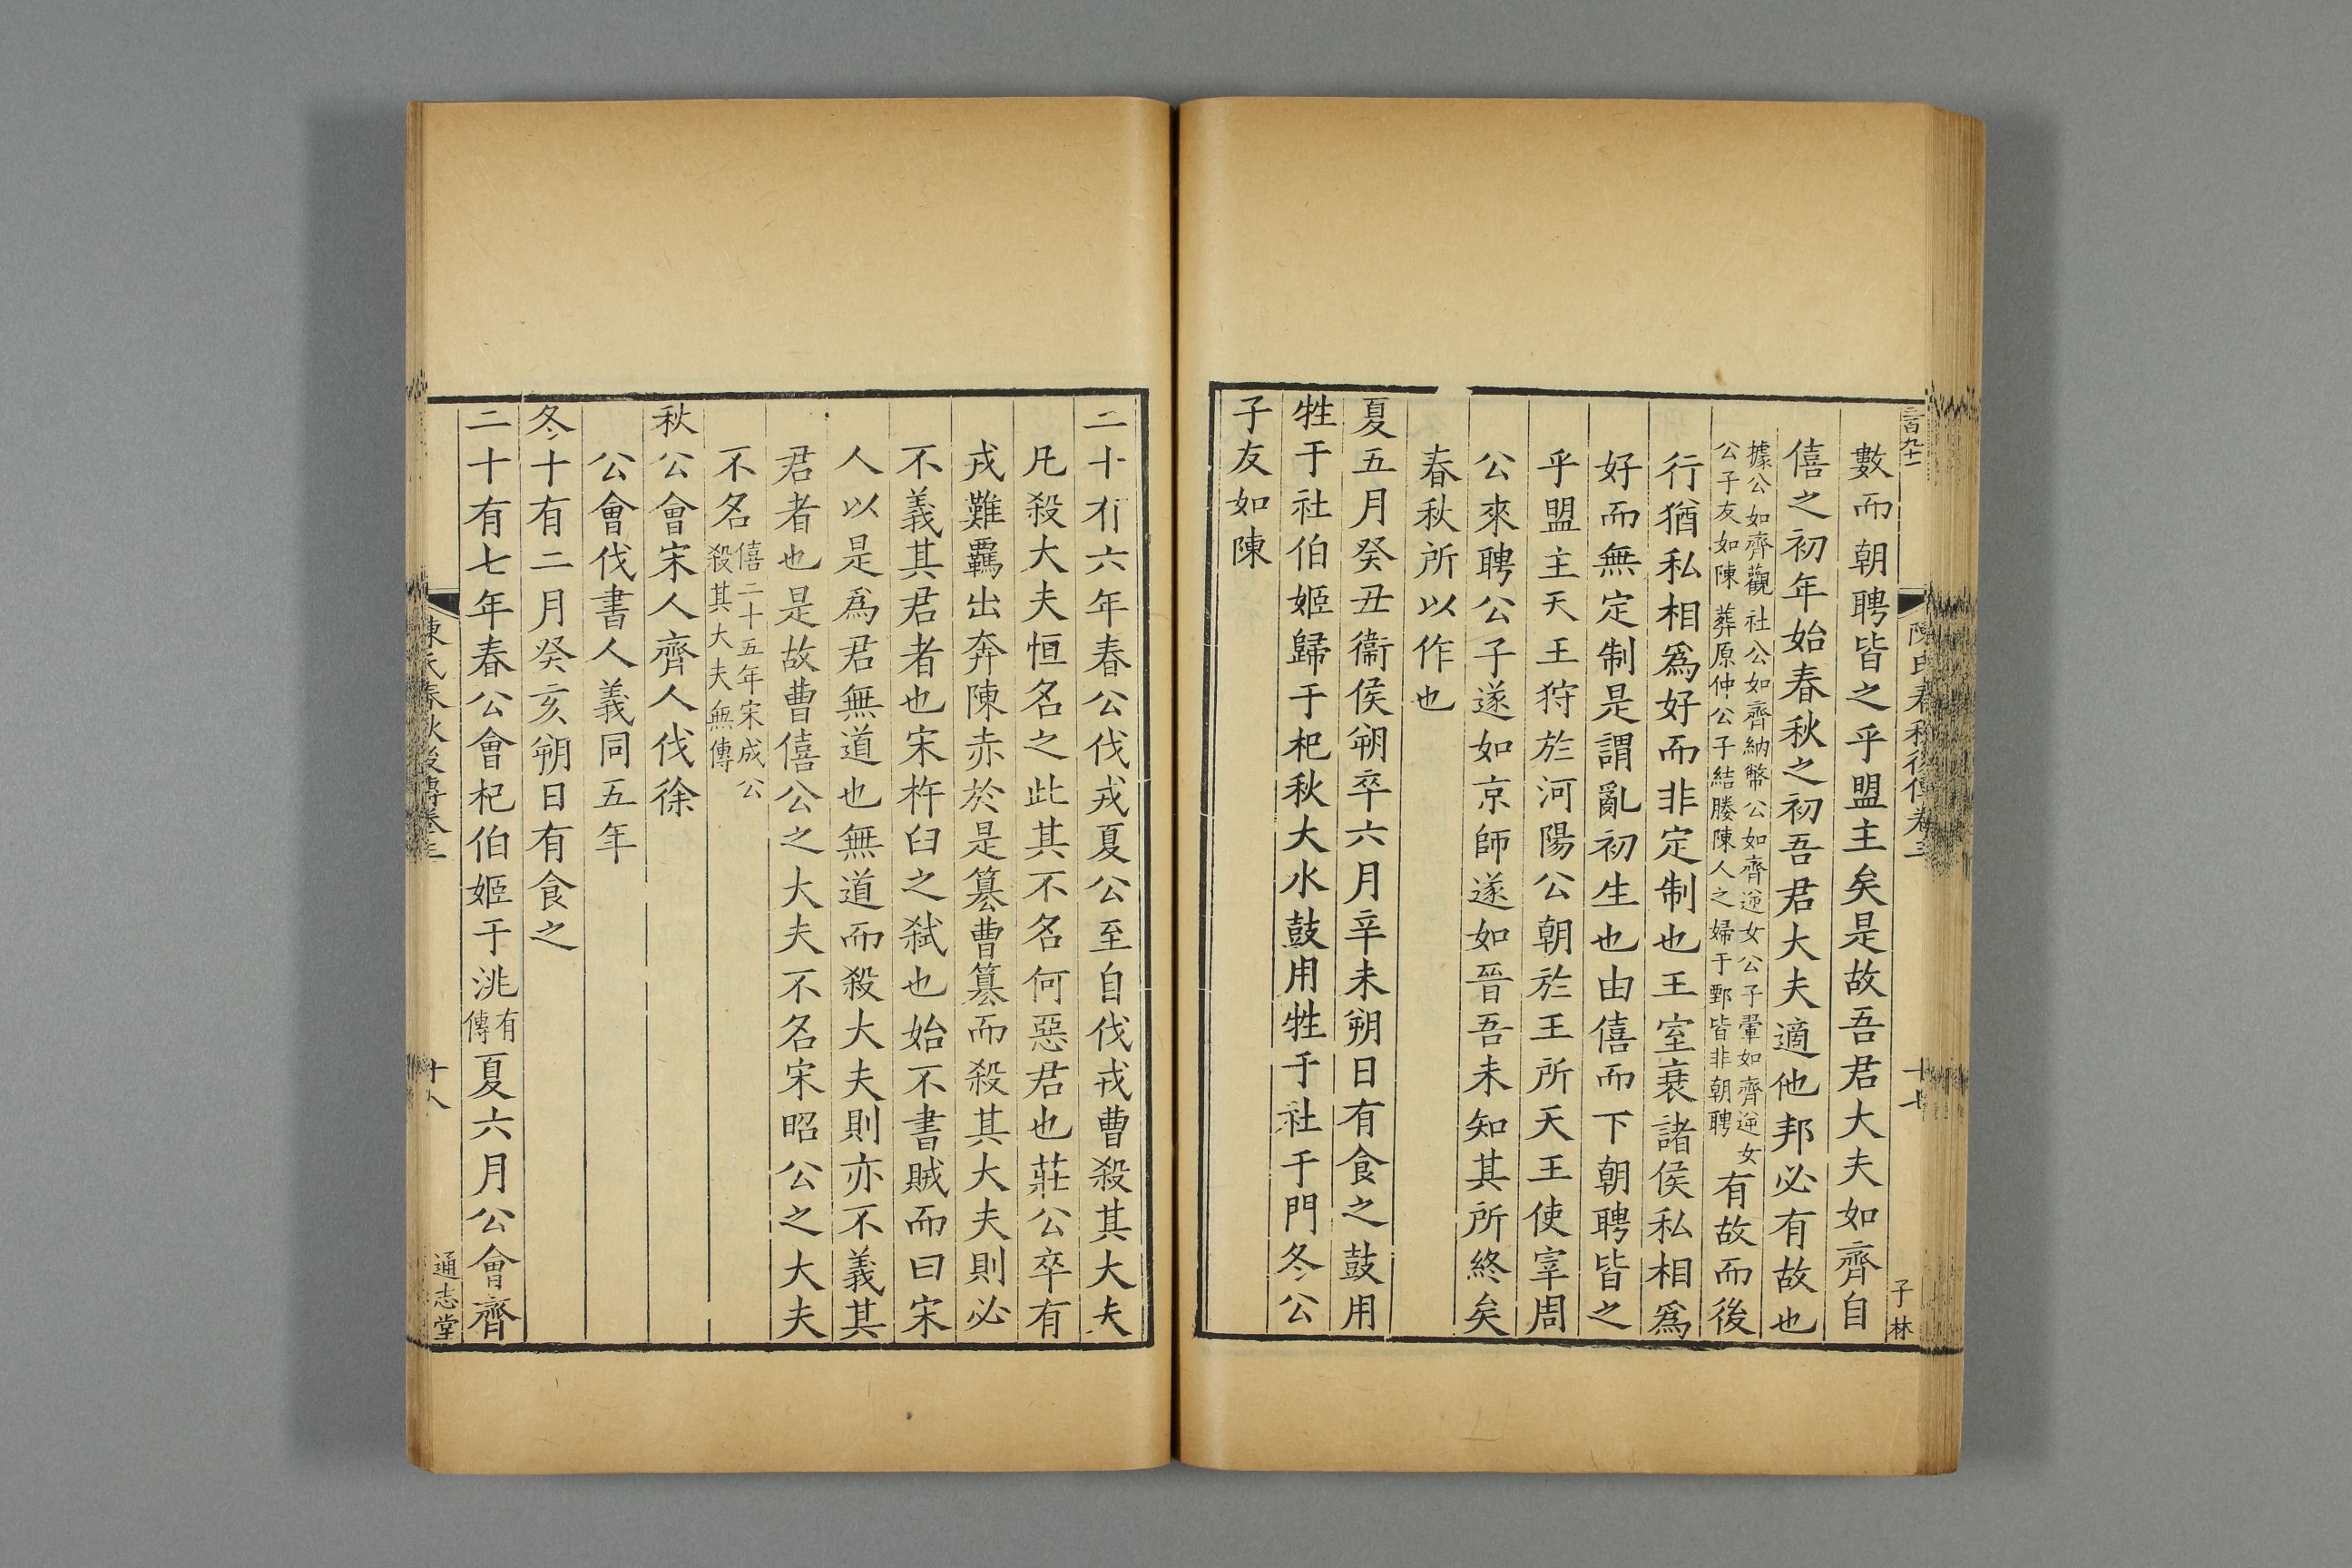 三百九十一
陳氏春秋後傳卷三
十七
子林
數而朝聘皆之乎盟主矣是故吾君大夫如齊自
僖之初年始春秋之初吾君大夫適他邦必有故也
據公如齊觀社公如齊納幣公如齊逆女公子翬如齊逆女
公子友如陳葬原仲公子結媵陳人之婦于鄄皆非朝聘
有故而後
行猶私相爲好而非定制也王室衰諸侯私相爲
好而無定制是謂亂初生也由僖而下朝聘皆之
乎盟主天王狩於河陽公朝於王所天王使宰周
公來聘公子遂如京師遂如晉吾未知其所終矣
春秋所以作也
夏五月癸丑衞侯朔卒六月辛未朔日有食之鼓用
牲于社伯姬歸于杞秋大水鼓用牲于社于門冬公
子友如陳
二十有六年春公伐戎夏公至自伐戎曹殺其大夫
凡殺大夫恒名之此其不名何惡君也莊公卒有
戎難羈出奔陳赤於是簒曹簒而殺其大夫則必
不義其君者也宋杵臼之弒也始不書賊而曰宋
人以是爲君無道也無道而殺大夫則亦不義其
君者也是故曹僖公之大夫不名宋昭公之大夫
不名
僖二十五年宋成公
殺其大夫無傳
秋公會宋人齊人伐徐
公會伐書人義同五年
冬十有二月癸亥朔日有食之
二十有七年春公會杞伯姬于洮
有
傳
夏六月公會齊
陳氏春秋後傳卷三
十八
通志堂